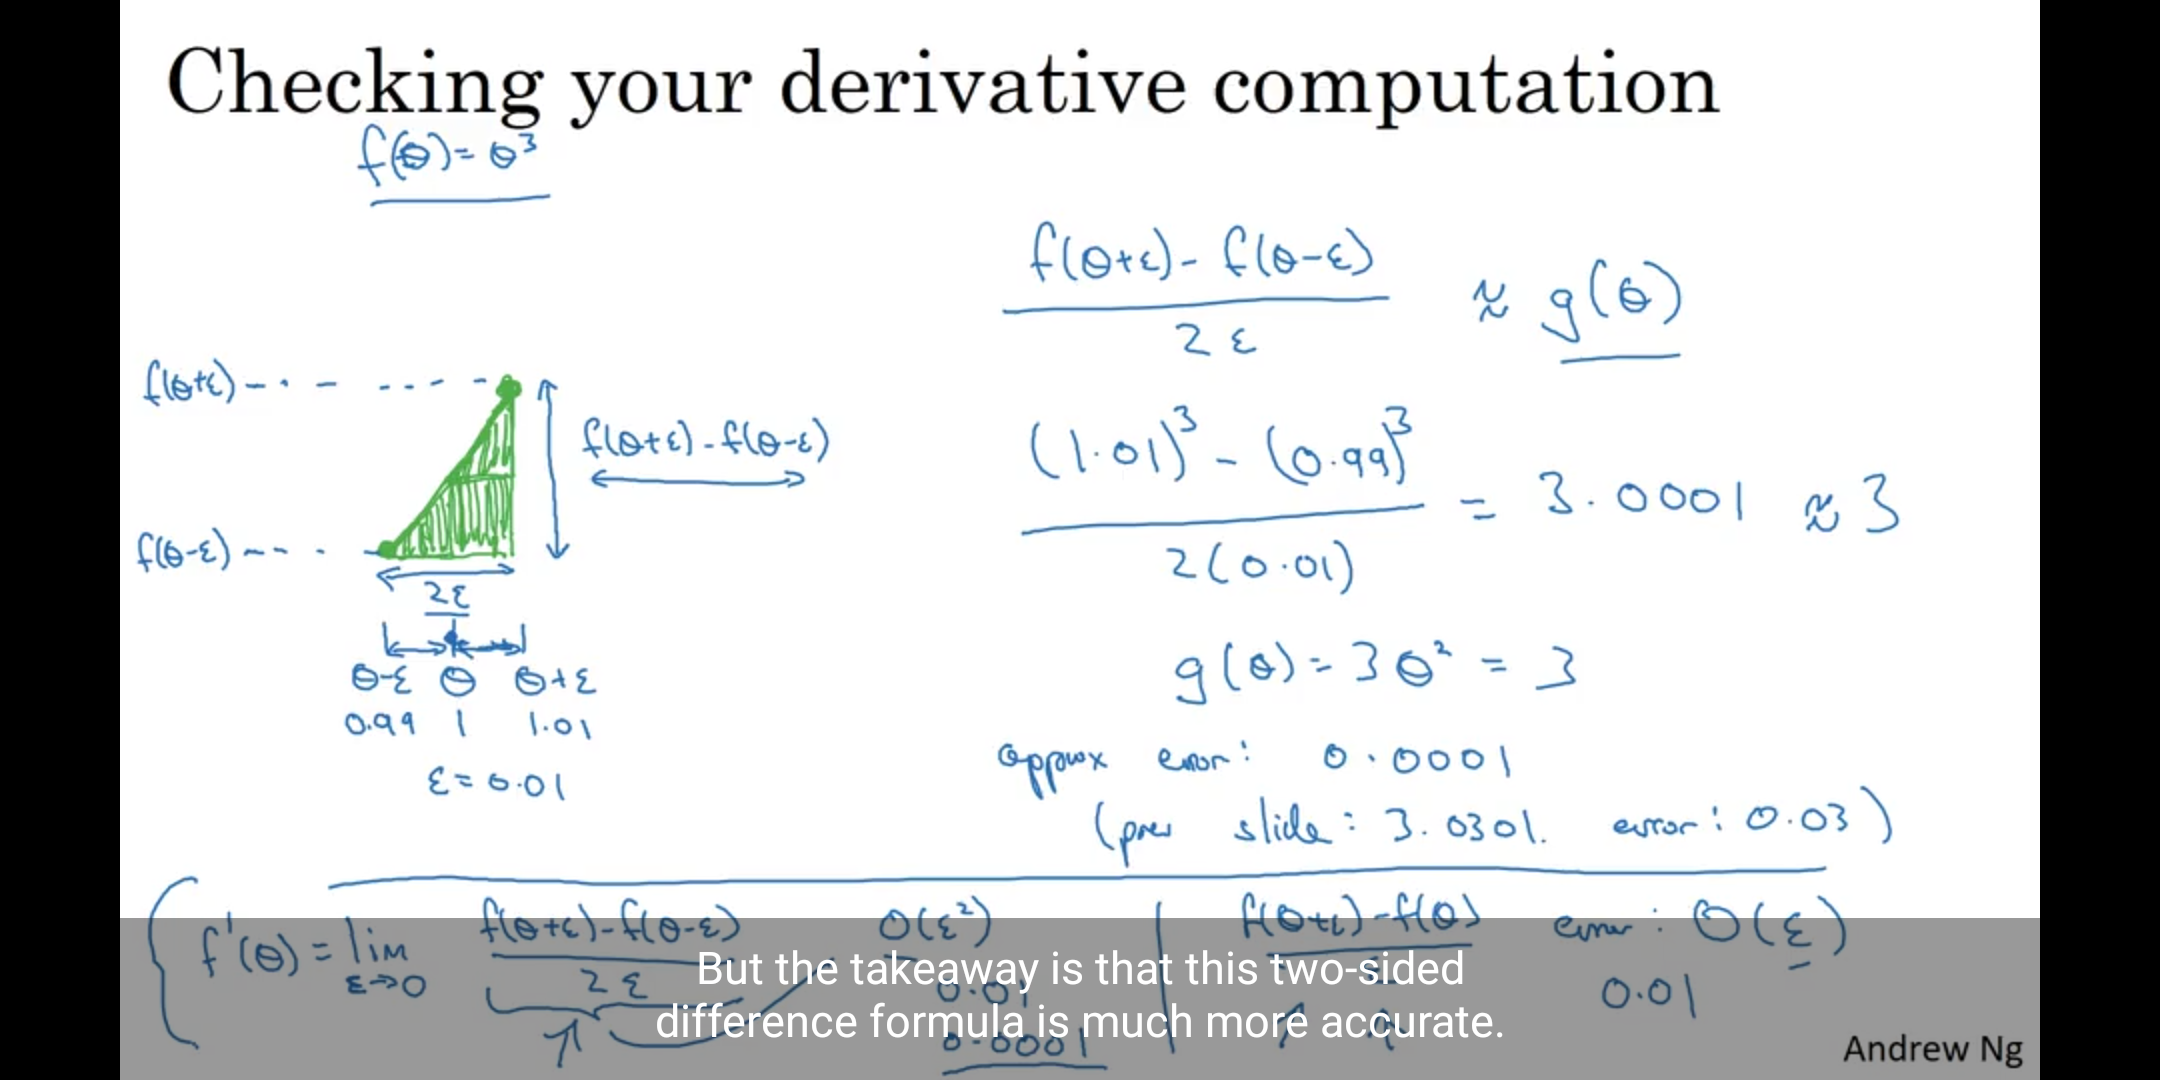 Checking your derivative computation
f(θ) = θ³
f(θ+ε) - f(θ-ε)
2ε
≈ g(θ)
f(θ+ε)
f(θ+ε) - f(θ-ε)
f(θ-ε)
2ε
θ-ε θ θ+ε
0.99 1 1.01
ε = 0.01
(1.01)³ - (0.99)³
2(0.01)
= 3.0001 ≈ 3
g(θ) = 3θ² = 3
approx error: 0.0001
(prev slide: 3.0301. error: 0.03)
f'(θ) = lim
ε→0
f(θ+ε) - f(θ-ε)
2ε
O(ε²)
0.01
0.0001
f(θ+ε) - f(θ)
error: O(ε)
0.01
But the takeaway is that this two-sided
difference formula is much more accurate.
Andrew Ng